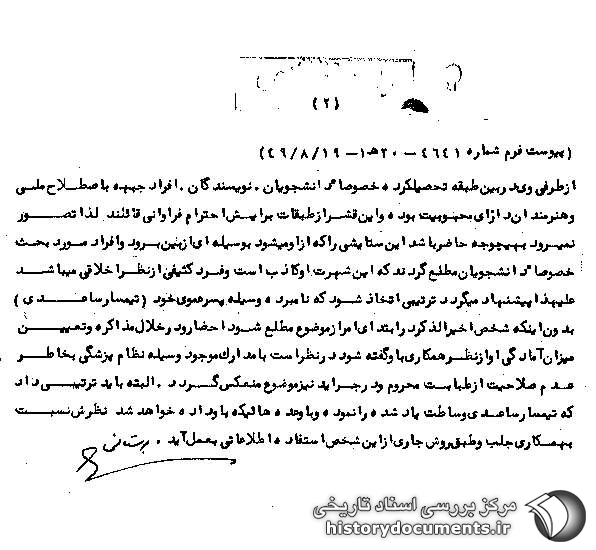 (۲)
(پیوست فرم شماره ۴۶۴۱ – ۲۰ه۱ – ۴۹/۸/۱۹)
ازطرفی وی دربین طبقه تحصیلکرده خصوصا" دانشجویان ، نویسندگان ، افراد جبهه باصطلاح ملی
وهنرمندان دارای محبوبیت بوده واین قشرازطبقات برایش احترام فراوانی قائلند . لذا تصور
نمیرود بهیچوجه حاضرباشد این ستایشی راکه ازاومیشود بوسیله ای ازبین برود وافراد مورد بحث
خصوصا" دانشجویان مطلع گردند که این شهرت اوکاذب است وفرد کثیفی ازنظراخلاقی میباشد
علیهذا پیشنهاد میگردد ترتیبی اتخاذ شود که نامبرده وسیله پسرعموی خود (تیمسارساعدی)
بدون اینکه شخص اخیرالذکردرابتدای امرازموضوع مطلع شود احضارودرخلال مذاکره وتعیین
میزان آمادگی اوازنظرهمکاری باوگفته شود درنظراست بامدارك موجود وسیله نظام پزشگی بخاطر
عدم صلاحیت ازطبابت محروم ودرجراید نیزموضوع منعکس گردد . البته باید ترتیبی داد
که تیمسارساعدی وساطت یاد شده رانموده وباوعده هائیکه باوداده خواهد شد نظرش نسبت
بهمکاری جلب وطبق روش جاری ازاین شخص استفاده اطلاعاتی بعمل آید .
مرکز بررسی اسناد تاریخی
historydocuments.ir